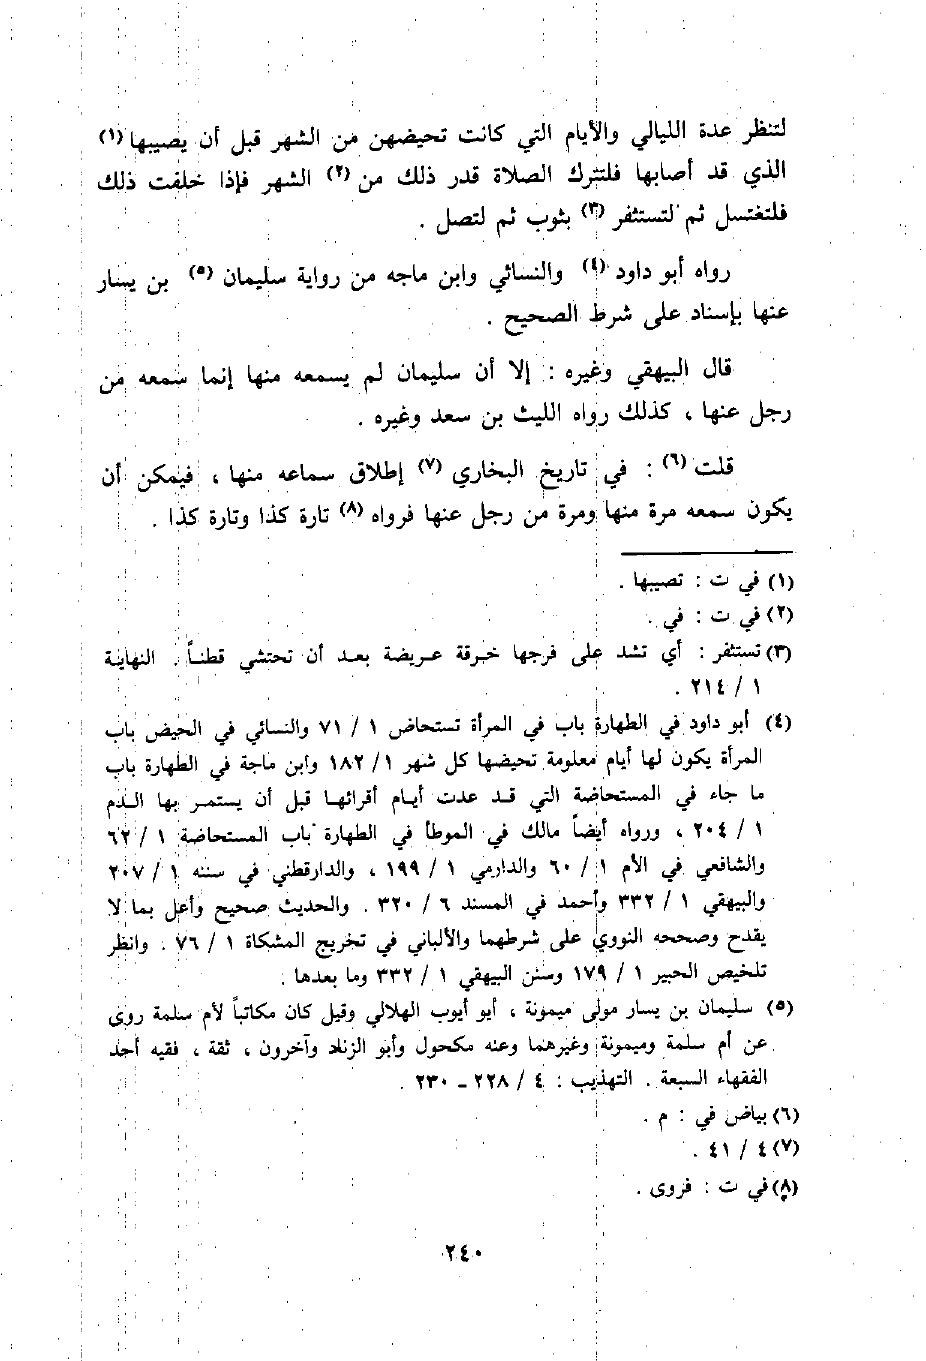 لتنظر عدة الليالي والأيام التي كانت تحيضهن من الشهر قبل أن يصيبها (١)
الذي قد أصابها فلتترك الصلاة قدر ذلك من (٢) الشهر فإذا خلفت ذلك
فلتغتسل ثم لتستثفر (٣) بثوب ثم لتصل .
رواه أبو داود (٤) والنسائي وابن ماجه من رواية سليمان (٥) بن يسار
عنها بإسناد على شرط الصحيح .
قال البيهقي وغيره : إلا أن سليمان لم يسمعه منها إنما سمعه من
رجل عنها ، كذلك رواه الليث بن سعد وغيره .
قلت (٦) : في تاريخ البخاري (٧) إطلاق سماعه منها ، فيمكن أن
يكون سمعه مرة منها ومرة من رجل عنها فرواه (٨) تارة كذا وتارة كذا .
(١) في ت : تصيبها .
(٢) في ت : في .
(٣) تستثفر : أي تشد على فرجها خرقة عريضة بعد أن تحتشي قطناً . النهاية
١ / ٢١٤ .
(٤) أبو داود في الطهارة باب في المرأة تستحاض ١ / ٧١ والنسائي في الحيض باب
المرأة يكون لها أيام معلومة تحيضها كل شهر ١ / ١٨٢ وابن ماجة في الطهارة باب
ما جاء في المستحاضة التي قد عدت أيام أقرائها قبل أن يستمر بها الدم
١ / ٢٠٤ ، ورواه أيضاً مالك في الموطأ في الطهارة باب المستحاضة ١ / ٦٢
والشافعي في الأم ١ / ٦٠ والدارمي ١ / ١٩٩ ، والدارقطني في سننه ١ / ٢٠٧
والبيهقي ١ / ٣٣٢ وأحمد في المسند ٦ / ٣٢٠ . والحديث صحيح وأعل بما لا
يقدح وصححه النووي على شرطهما والألباني في تخريج المشكاة ١ / ٧٦ . وانظر
تلخيص الحبير ١ / ١٧٩ وسنن البيهقي ١ / ٣٣٢ وما بعدها .
(٥) سليمان بن يسار مولى ميمونة ، أبو أيوب الهلالي وقيل كان مكاتباً لأم سلمة روى
عن أم سلمة وميمونة وغيرهما وعنه مكحول وأبو الزناد وآخرون ، ثقة ، فقيه أحد
الفقهاء السبعة . التهذيب : ٤ / ٢٢٨ - ٢٣٠ .
(٦) بياض في : م .
(٧) ٤ / ٤١ .
(٨) في ت : فروى .
٢٤٠